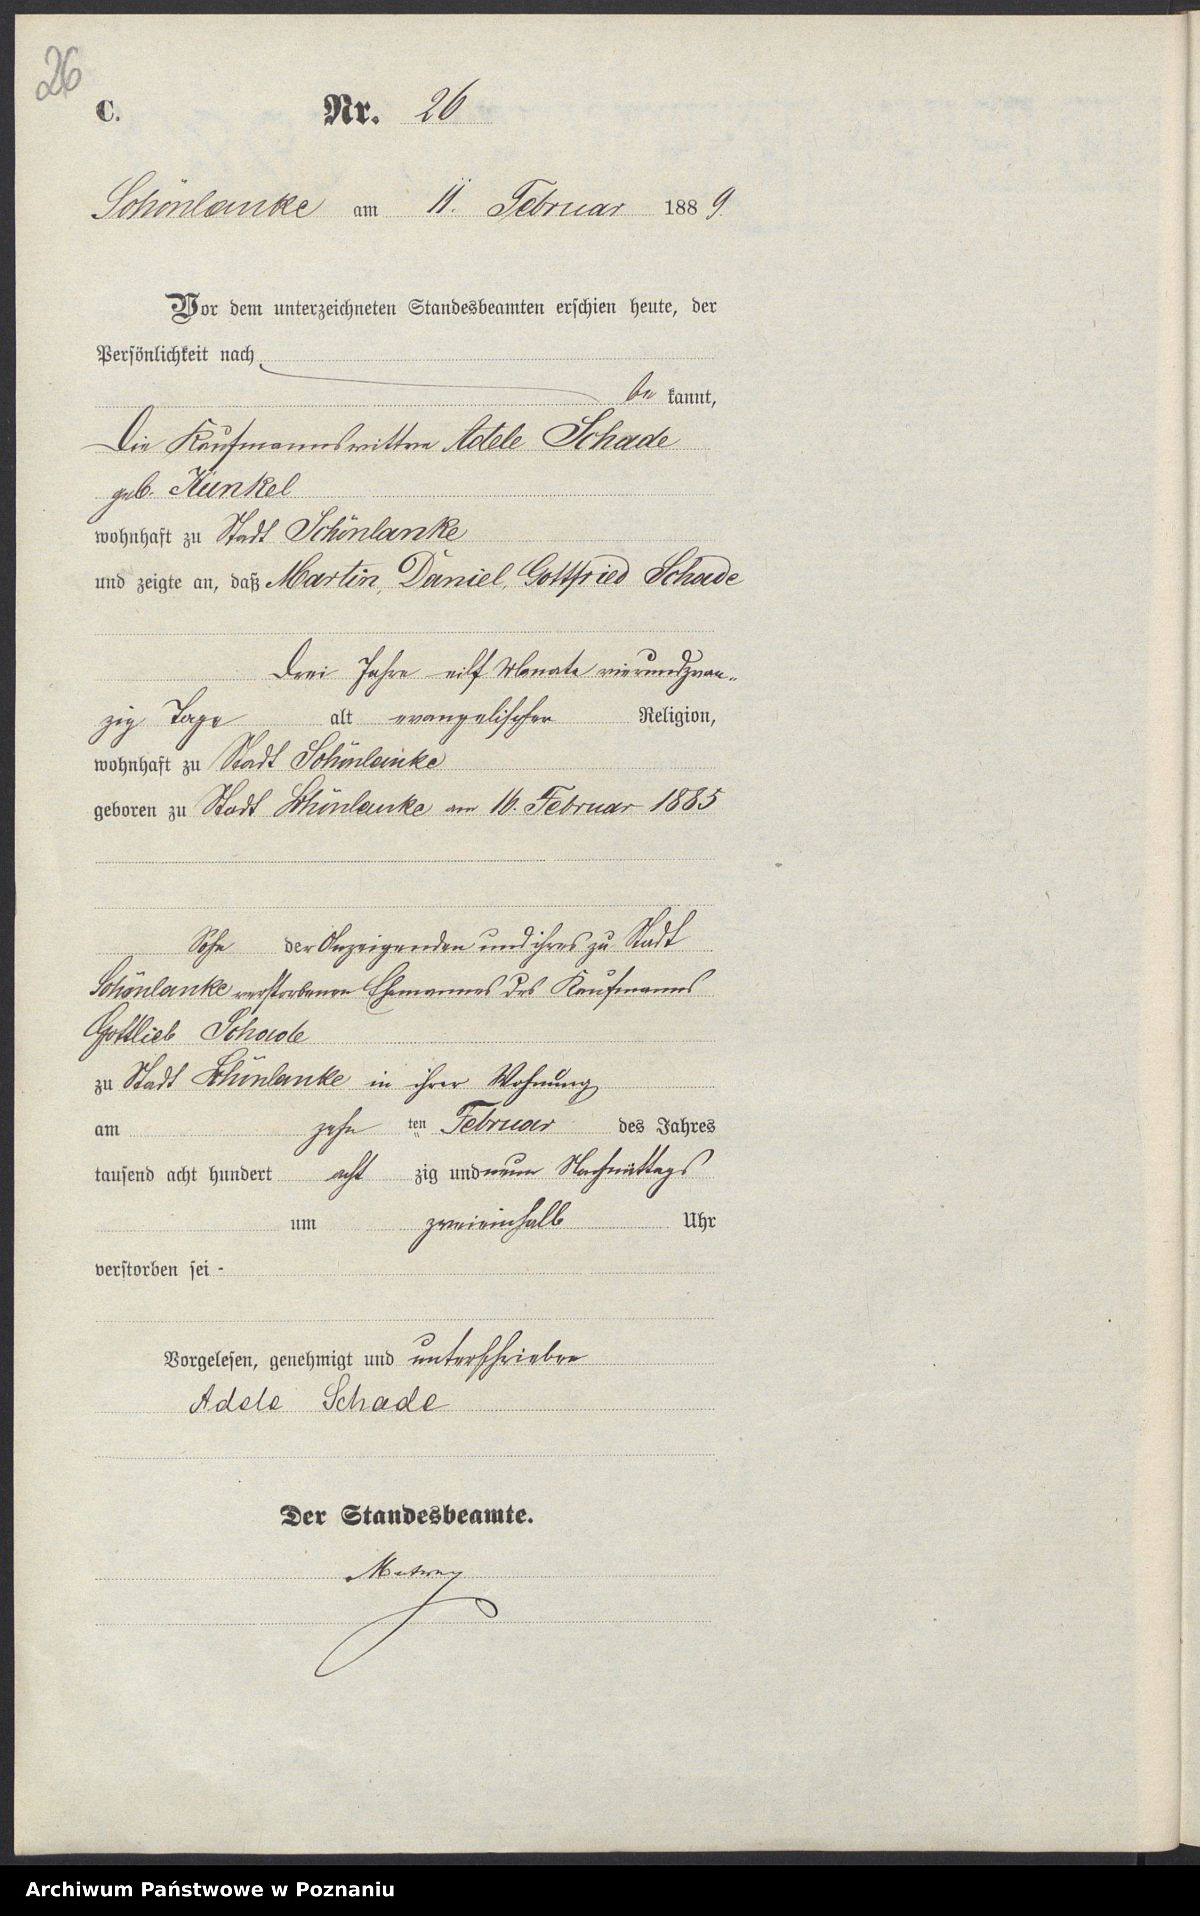 26
C. Nr. 26
Schönlanke am 11. Februar 1889.
Vor dem unterzeichneten Standesbeamten erschien heute, der
Persönlichkeit nach
be kannt,
Die Kaufmannswittwe Adele Schade
geb. Kunkel
wohnhaft zu Stadt Schönlanke
und zeigte an, daß Martin, Daniel, Gottfried Schade
drei Jahre eilf Monate vierundzwan-
zig Tage alt evangelischer Religion,
wohnhaft zu Stadt Schönlanke
geboren zu Stadt Schönlanke am 16. Februar 1885
Sohn der Anzeigenden und ihres zu Stadt
Schönlanke verstorbenen Ehemannes des Kaufmanns
Gottlieb Schade
zu Stadt Schönlanke in ihrer Wohnung
am zehn ten Februar des Jahres
tausend acht hundert acht zig und neun Nachmittags
um zweieinhalb Uhr
verstorben sei -
Vorgelesen, genehmigt und unterschrieben
Adele Schade
Der Standesbeamte.
Archiwum Państwowe w Poznaniu